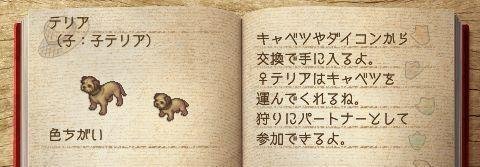 テリア
（子：子テリア）
色ちがい
キャベツやダイコンから
交換で手に入るよ。
♀テリアはキャベツを
運んでくれるね。
狩りにパートナーとして
参加できるよ。